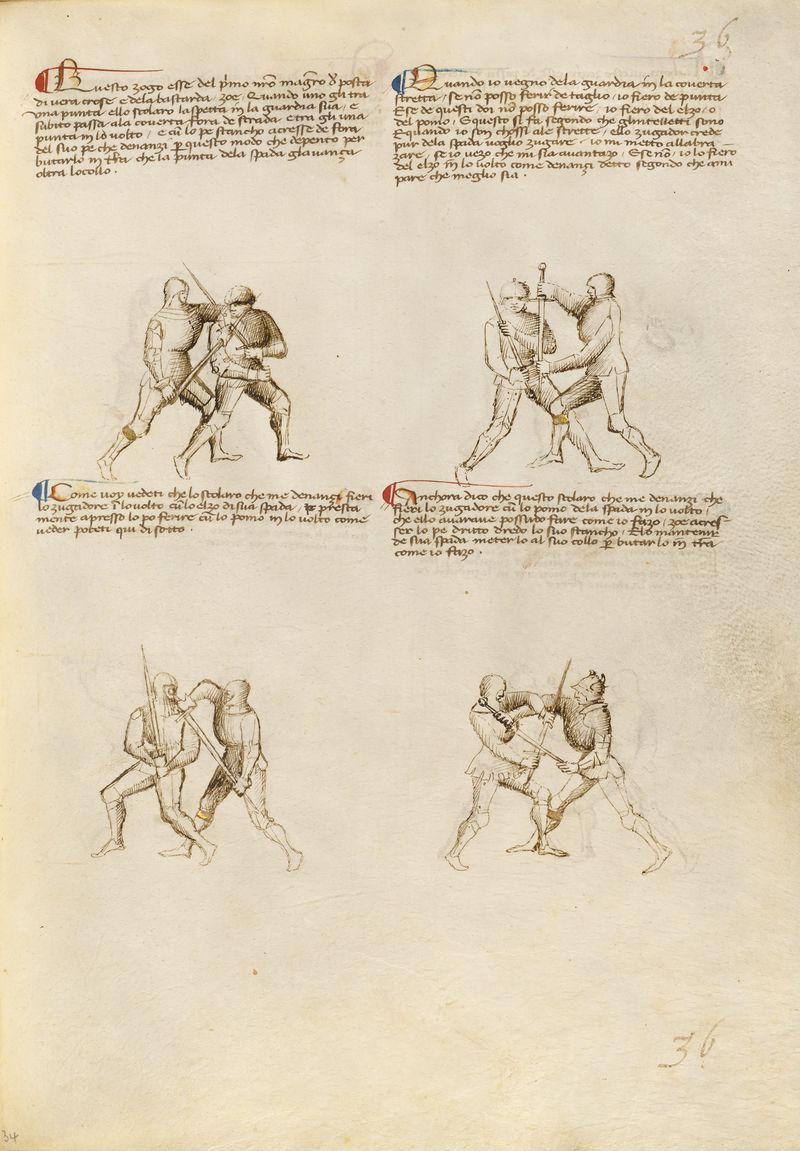 36
Questo zogo esse del p'mo nr̃o magr̃o d' posta
di vera crose e dela bastarda, zoe, Quando uno gli tra
una punta, ello scolaro la spetta in la guardia sua, e
subito passa ala coverta fora de strada, e tra gli una
punta in lo volto, e cũ lo pe stancho acresse de fora
del suo pe che denanzi p questo modo che depento per
butarlo in tr̃a, che la punta dela spada gla vanza
oltra lo collo.
Quando io vegno dela guardia in la coverta
stretta, se nõ posso ferir de taglio, io fiero de punta
Ese de questi doi nõ posso ferire, io fiero del elzo, o
del pomo, E questo si fa segondo che glintelletti sono
E quando io son chossi ale strette, ello zugador crede
pur dela spada voglio zugare, io mi metto alla bra
zare, se io vezo che mi sia avantazo, Ese nõ, io lo fiero
del elzo in lo volto come denanzi detto segondo che a mi
pare che meglio sia.
Come voy vedeti che lo scolaro che me denanzi fieri
lo zugadore ĩ lo volto cũ lo elzo di sua spada, presta
mente apresso lo po ferire cũ lo pomo in lo volto come
veder poteti qui di sotto.
Anchora dico che questo scolaro che me denanzi che
fieri lo zugadore cũ lo pomo dela spada in lo volto,
che ello avarave possudo fare come io fazo, zoe acres
ser lo pe dritto dredo lo suo stancho, Elo mantenir
de sua spada meter lo al suo collo p butar lo in tr̃a
come io fazo.
36
34